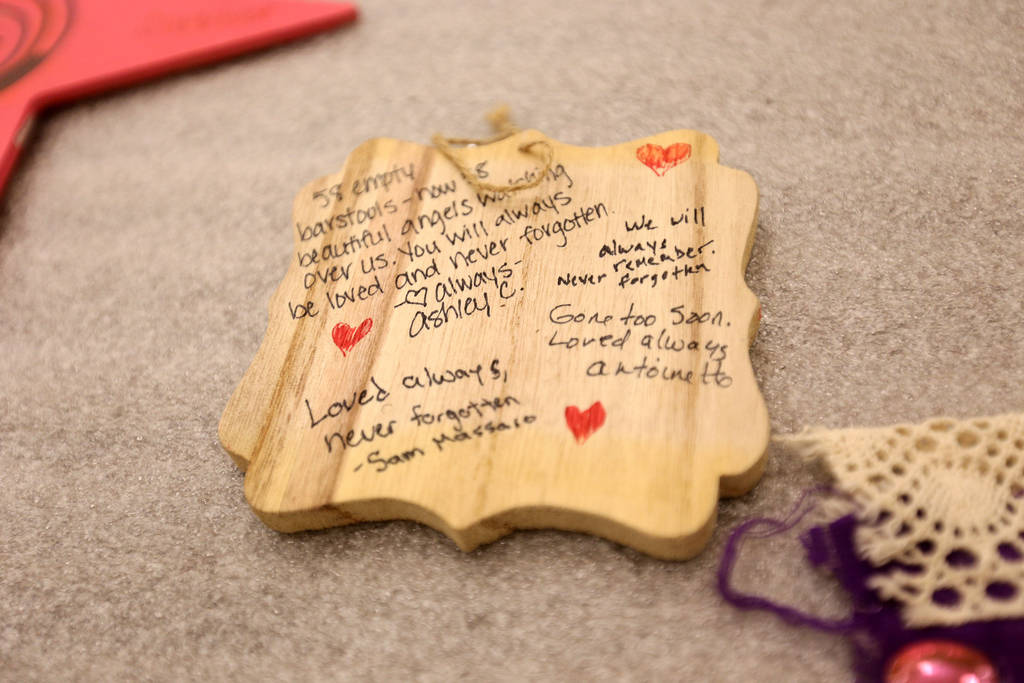 58 empty
barstools - now 58
beautiful angels watching
over us. You will always
be loved and never forgotten.
-♡ always -
ashley C.
We will
always
remember.
Never forgotten
Gone too soon.
Loved always
antoinette
Loved always,
never forgotten
- Sam Massaro